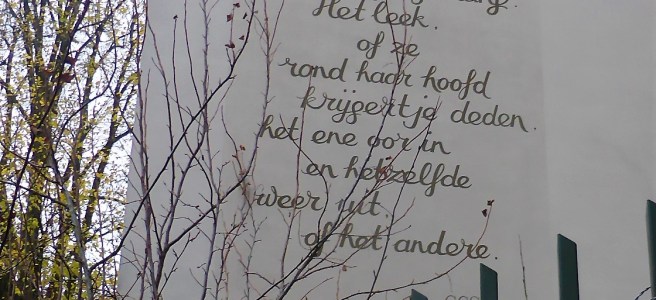 Het leek.
of ze
rond haar hoofd
krijgertje deden.
het ene oor in
en hetzelfde
weer uit.
of het andere.